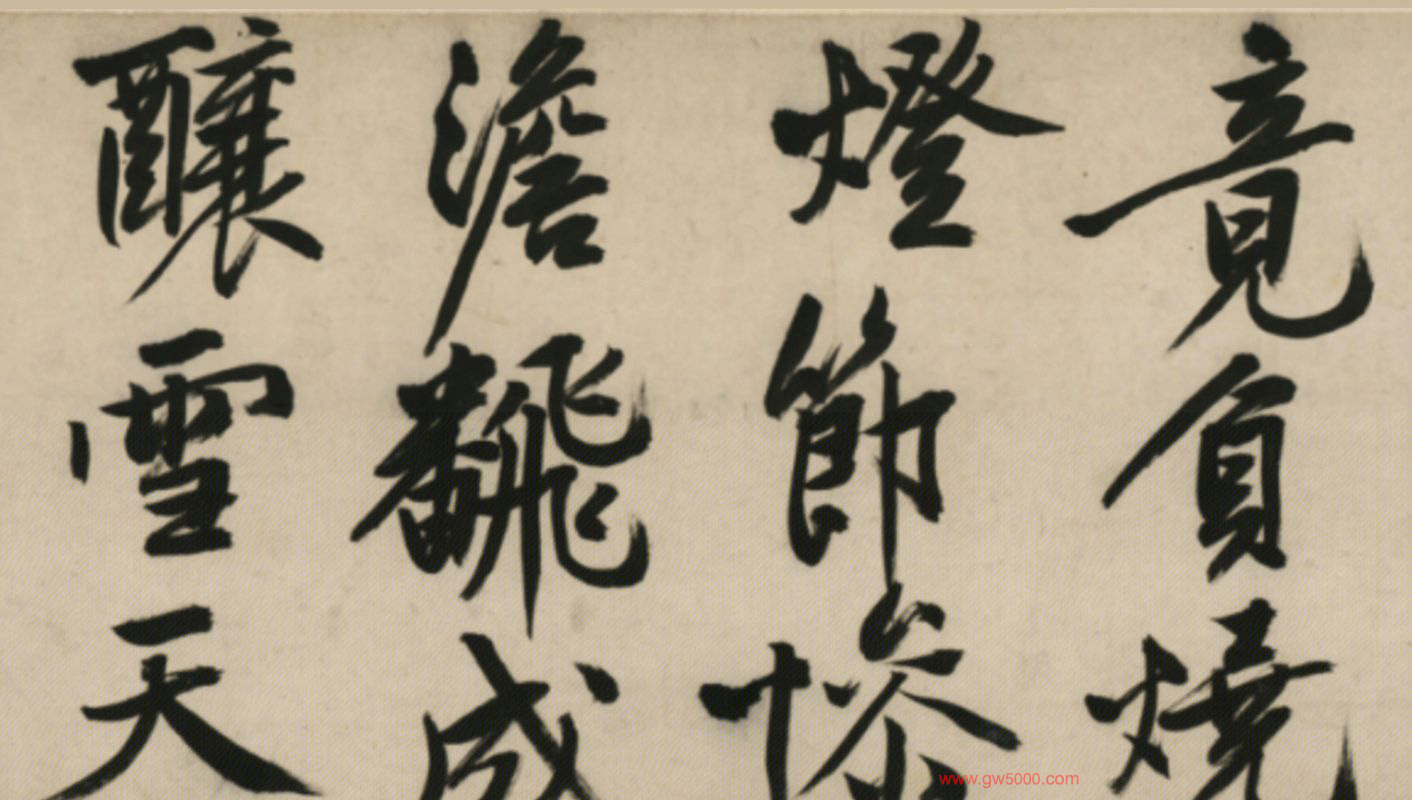 竟負燒
燈節慘
澹飜成
釀雪天
www.gw5000.com